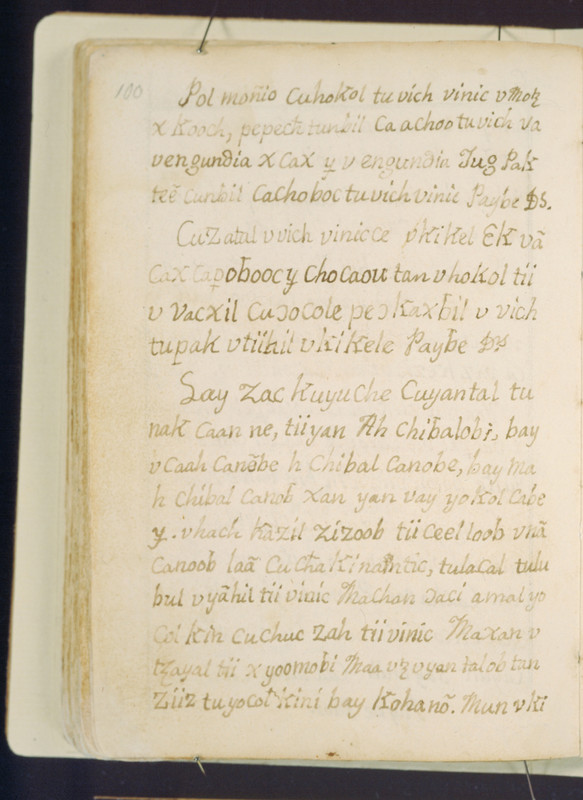 100
Pol moñio Cuhokol tu vich vinic v Motz
x kooch, pepech tunbil Ca a choo tu vich va
vengundia x Cax y v engundia Jug Pak
teē Cunbil Cachoboc tu vich vinic Paybe Ds.
Cuzatal v vich vinicce pkikel Ek vā
Cax Capoboocy Chocaou tan v hokol tii
v Vacxil Cuɔocole peɔ kaxbil v vich
tupak v tiihil v kikele Paybe Ds
Lay zac kuyuche Cuyantal tu
nak Caan ne, tii yan Ah chibalobi, bay
v Caah Canobe h Chibal Canobe, bay ma
h chibal Canob xan yan vay yokol Cabe
y. v hach kazil zizoob tii ceel loob v nā
Canoob laā Cu Chakinamtic, tulacal tulu
bul v yāhil tii vinic Machan ɔaci amal yo
Col kin Cuchuc zah tii vinic Maxan v
tzayal tii x yoomobi Maa vtz v yan talob tun
Ziiz tu yocol kini bay kohanō. Mun v ki